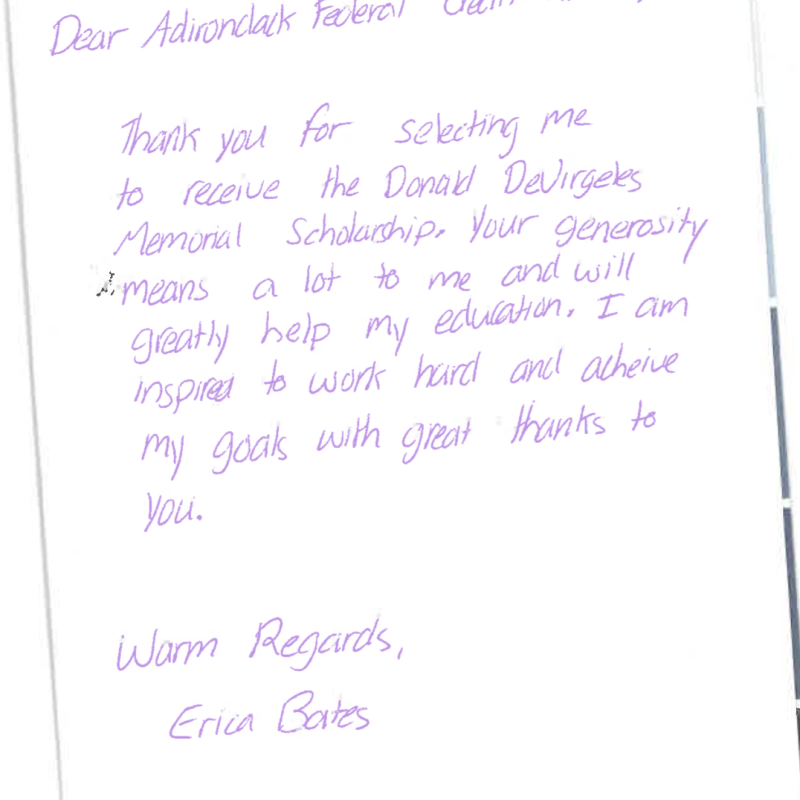 Dear Adirondack Federal
Thank you for selecting me
to receive the Donald DeVirgeles
Memorial Scholarship. Your generosity
means a lot to me and will
greatly help my education. I am
inspired to work hard and acheive
my goals with great thanks to
you.
Warm Regards,
Erica Bates